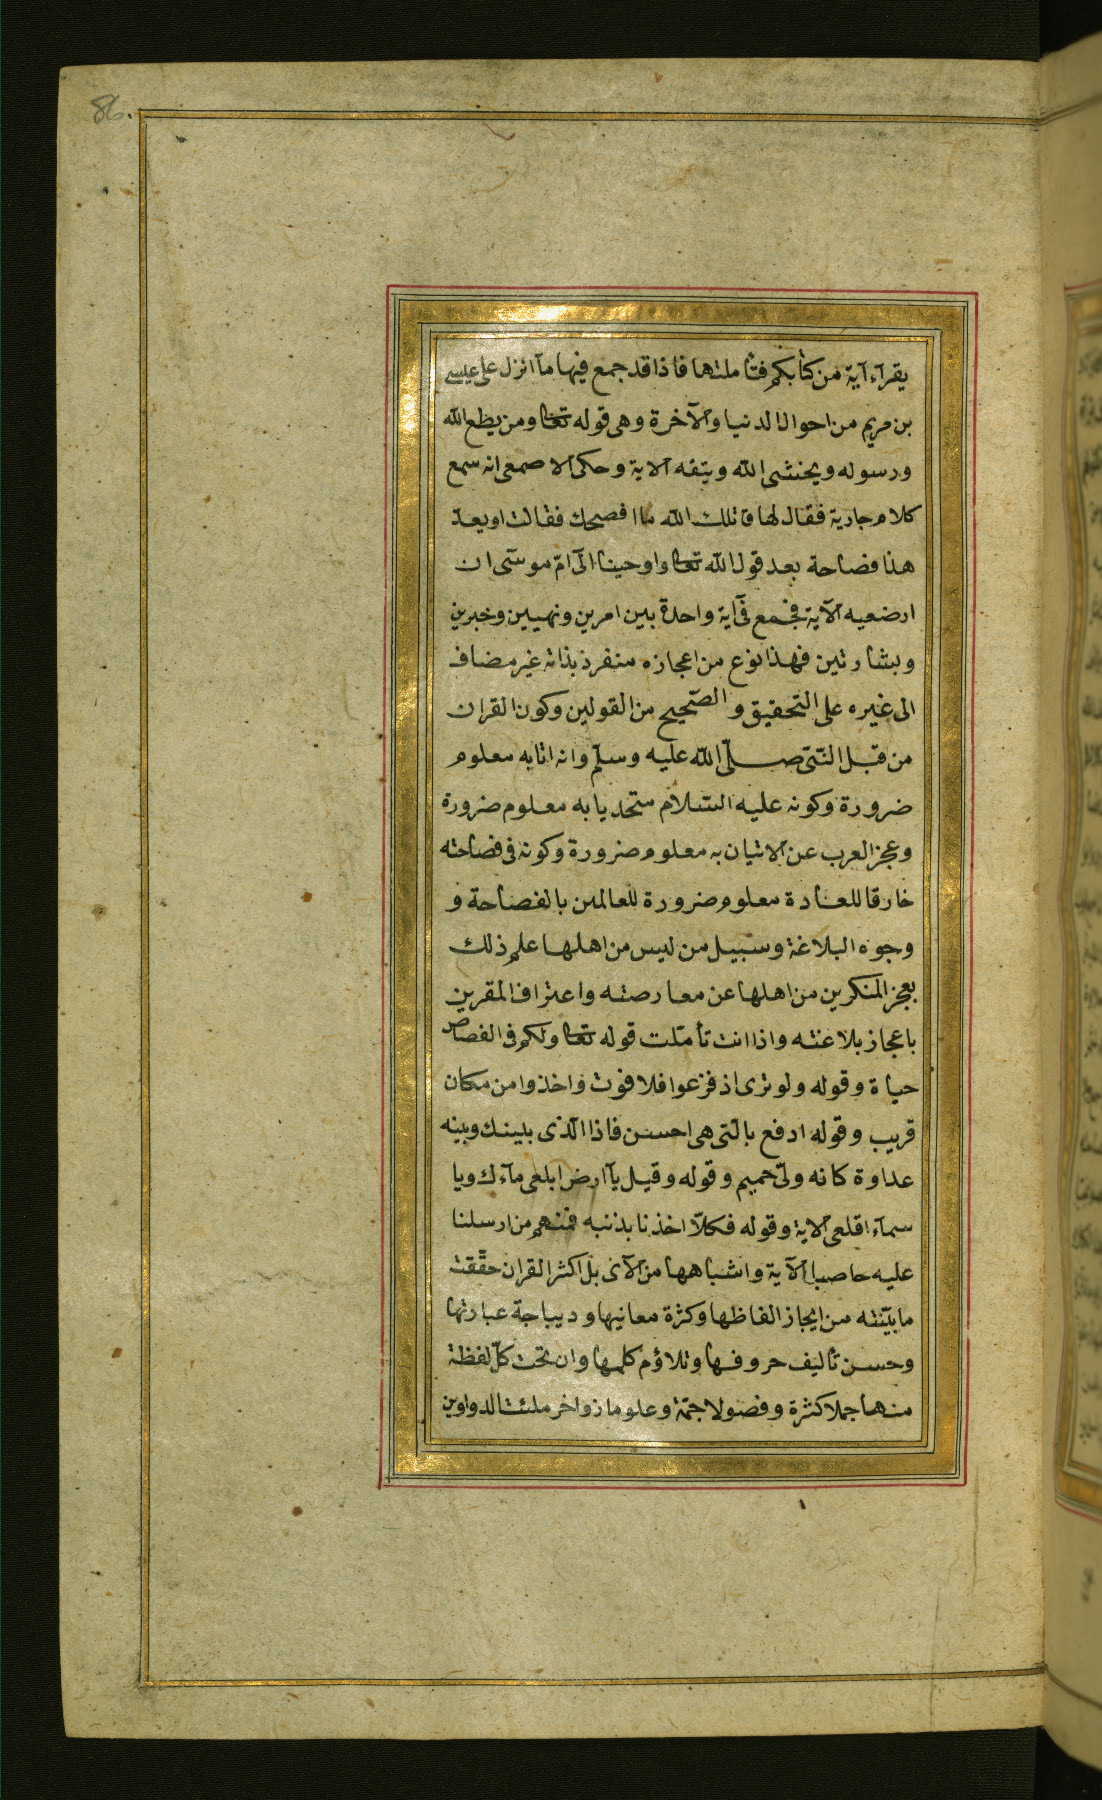 86.
يقرآء آية من كتابكم فتأملتها فاذا قد جمع فيها مآ انزل على عيسى
بن مريم من احوال الدنيا والآخرة وهى قوله تعا ومن يطع الله
ورسوله ويخشى الله ويتقه الاية وحكى الاصمعى انه سمع
كلام جارية فقال لها قاتلك الله ما افصحك فقالت اويعدّ
هذا فصاحة بعد قول الله تعا واوحينا الى امّ موسى ان
ارضعيه الآية فجمع فى آية واحدة بين امرين ونهيين وخبرين
وبشارتين فهذا نوع من اعجازه منفرد بذاته غير مضاف
الى غيره على التحقيق والصّحيح من القولين وكون القران
من قبل النّبى صلّى الله عليه وسلّم وانه اتا به معلوم
ضرورة وكونه عليه السّلام متحديا به معلوم ضرورة
وعجز العرب عن الاتيان به معلوم ضرورة وكونه فى فصاحته
خارقا للعادة معلوم ضرورة للعالمين بالفصاحة و
وجوه البلاغة وسبيل من ليس من اهلها علم ذلك
بعجز المنكرين من اهلها عن معارضته واعتراف المقرين
باعجاز بلاغته واذا انت تأمّلت قوله تعا ولكم فى القصاص
حياة وقوله ولو ترى اذ فزعوا فلا فوت واخذوا من مكان
قريب وقوله ادفع بالّتى هى احسن فاذا الّذى بينك وبينه
عداوة كانه ولىّ حميم وقوله وقيل يآ ارض ابلعى مآءك ويا
سمآء اقلعى الاية وقوله فكلّا اخذنا بذنبه فمنهم من ارسلنا
عليه حاصبا الآية واشباهها من الآى بل اكثر القران حقّقت
ما بيّنته من ايجاز الفاظها وكثرة معانيها وديباجة عبارتها
وحسن تأليف حروفها وتلاؤم كلمها وان تحت كلّ لفظة
منها جملا كثرة وفصولا جمّة وعلوما زواخر ملئت الدواوين